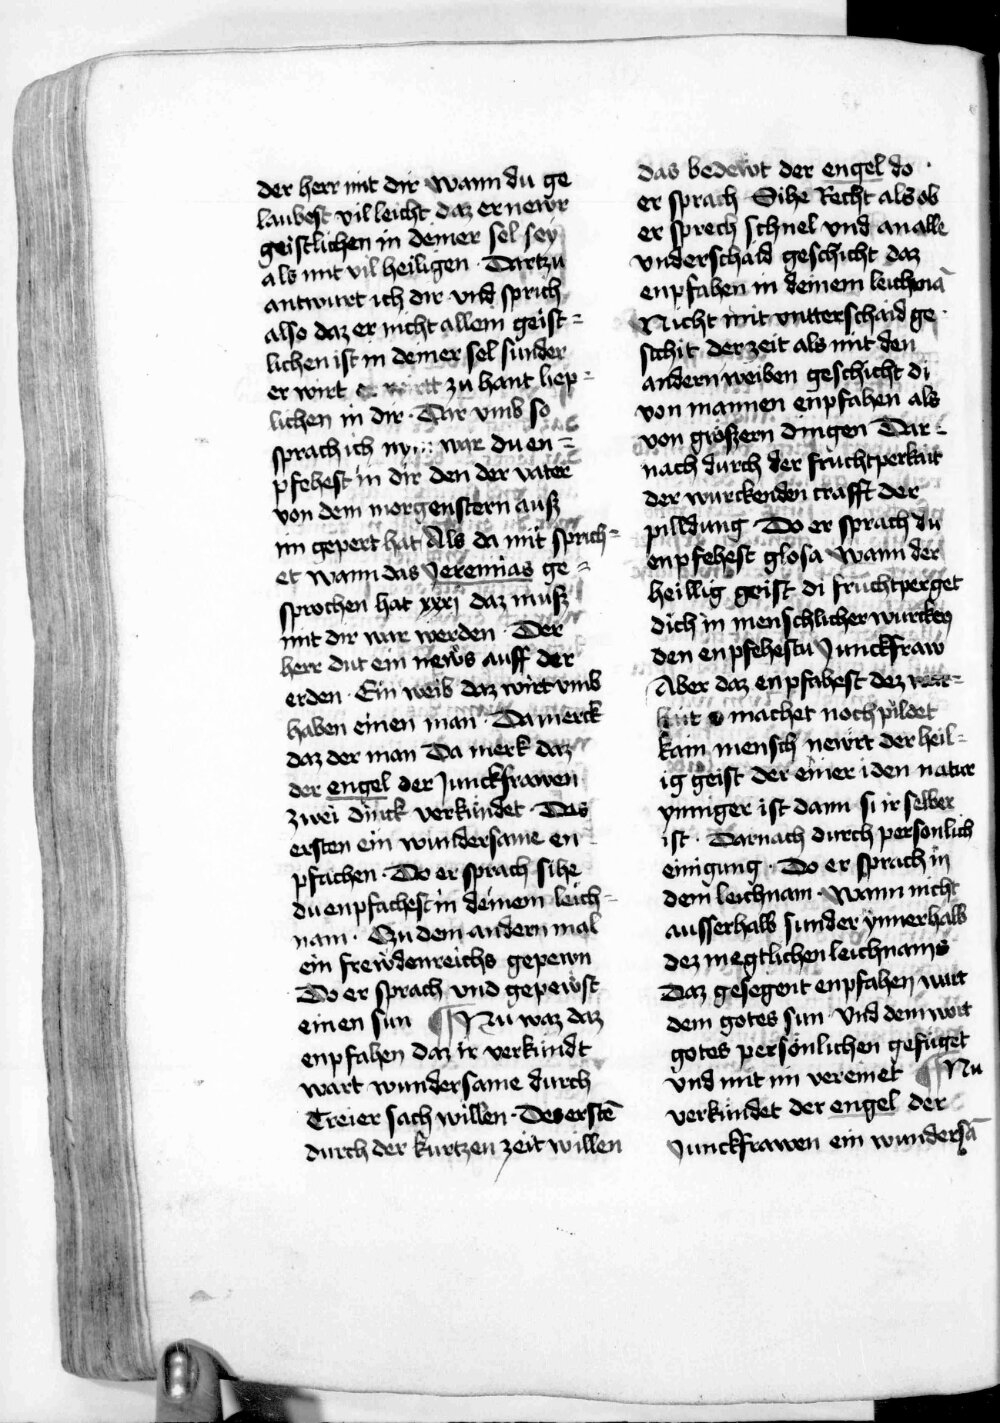 der herr mit dir wann du ge
laubest vil leicht daz er newr
geistlichen in deiner sel sey
als mit vil heiligen · Dartzu
antwurt ich dir vnd sprich
also daz er nicht allein geist=
lichen ist in deiner sel sunder
er wirt zu hant liep=
lichen in dir · Dar vmb so
sprach ich war du en=
pfehest in dir den der vater
von dem morgenstern auß
im gepert hat Als da mit sprich=
et wann das Jeremias ge=
sprochen hat xxxj daz muß
mit dir war werden · Der
herr dut ein news auff der
erden · Ein weib daz wirt vmb
haben einen man · Da merck
daz der man Da merk daz
der engel der Junckfrawen
zwei dinck verkundet · Des
ersten ein wundersame en=
pfachen · Do er sprach sihe
du enpfachest in deinem leich=
nam · Zu dem andern mal
ein frewdenreichs gepewn
Do er sprach vnd gepewst
einen sun ¶ Nu waz daz
enpfahen daz ir verkundt
wart wundersame durch
Dreier sach willen · Des erstē
durch der kurtzen zeit willen
das bedewt der engel do ·
er sprach Sihe Recht als ob
er sprech schnel vnd an alle
vnderschaid geschicht daz
enpfahen in deinem leichnā
Nicht mit vntterschaid ge·
schit der zeit als mit den
andern weiben geschicht di
von mannen enpfahen als
von größern dingen Dar=
nach durch der fruchtperkait
der wurckenden crafft der
pilldung · Do er sprach du
enpfehest glosa Wann der
heillig geist di fruchtperget
dich in menschlicher wurcken
den enpfehestu Junckfraw
Aber daz enpfahest dez
machet noch pildet
kain mensch newrt der heil=
ig geist der einer iden natur
ynniger ist dann si ir selber
ist · Darnach durch personlich
einigung · Do er sprach in
dem leichnam · Wann nicht
ausserhalb sunder ynnerhalb
dez megtlichen leichnams
Daz gesegent enpfahen wirt
dem gotes sun · Vnd dem wort
gotes persönlichen gefuget
vnd mit im vereinet ¶ Nu
verkundet der engel der
Junckfrawen ein wundersā